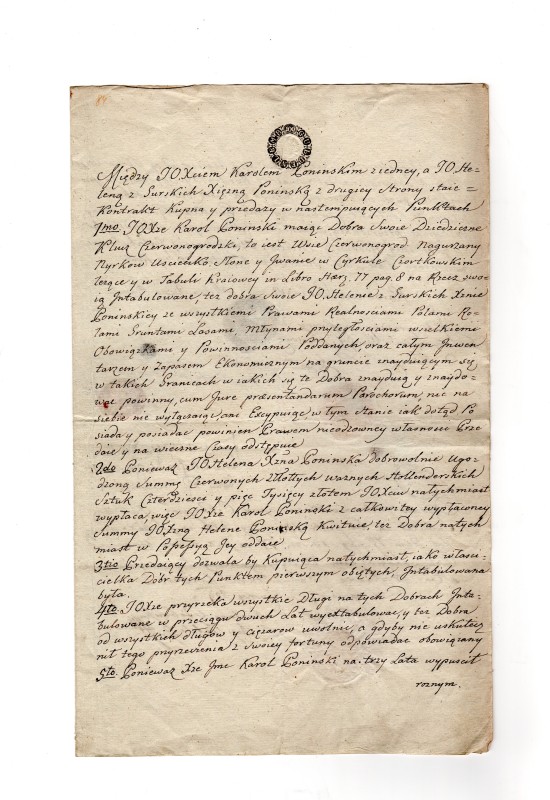 Między JOXciem Karolem Poninskim z iedney, a JO. He-
leną z Gurskich Xiężną Poninską z drugiey Strony staie =
Kontrakt Kupna y przedaży w nastempuiących Punktach
1mo. JOXże Karol Poninski maiąc Dobra Swoie Dziedziczne
Klucz Czerwonogrodzki, to iest Wsie Czerwonogrod Nagurzany
Nyrkow Uscieczko Słone y Jwanie w Cyrkule Czortkowskim
leżące y w Tabuli Kraiowey in Libro Hær. 77 pag. 8 na Rzecz swo-
ią Jntabulowane, też dobra Swoie JO. Helenie z Gurskich Xżnie
Poninskiey ze wszystkiemi Prawami Realnościami Polami Ro-
lami Gruntami Lasami, Młynami przyległościami wszelkiemi
Obowiązkami y Powinnościami Poddanych, oraz całym Jnwen
tarzem y Zapasem Ekonomicznym na gruncie znayduiącym się
w takich Granicach w iakich się te Dobra znayduią y znaydo-
wać powinny, cum Jure præsentandorum Parochorum, nic na
siebie nie wyłączaiąc ani Excypuiąc w tym Stanie iak dotąd Po
siada y posiadać powinien Prawem nieodzowney własności Prze
daie y na wieczne Czasy odstępuie
2do Ponieważ JO Helena Xżna Poninska dobrowolnie Ugo-
dzoną Summę Czerwonych Złłotych ważnych Hollenderskich
Sztuk Czterdzieści y pięć Tysięcy złotem JOXciu natychmiast
wypłaca, więc JOXże Karol Poninski z całkowitey wypłaconey
Summy JOXżnę Helenę Poninską Kwituie, też Dobra natych
miast w Possessyą Jey oddaie
3tio Przedaiący dozwala by Kupuiąca natychmiast, iako właści-
cielka Dobr tych Punktem pierwszym obiętych, Jntabulowana
była.
4to. JOXże przyrzeka wszystkie Długi na tych Dobrach Jnta-
bulowane w przeciągu dwuch Lat wyextabulować, y też Dobra
od wszystkich długow y cięzarow uwolnić, a gdyby nie uskutecz
nił tego przyrzeczenia z Swoiey fortuny odpowiadać obowiązany
5to. Ponieważ Xże Jmc Karol Poninski na trzy Lata wypuścił
roznym.